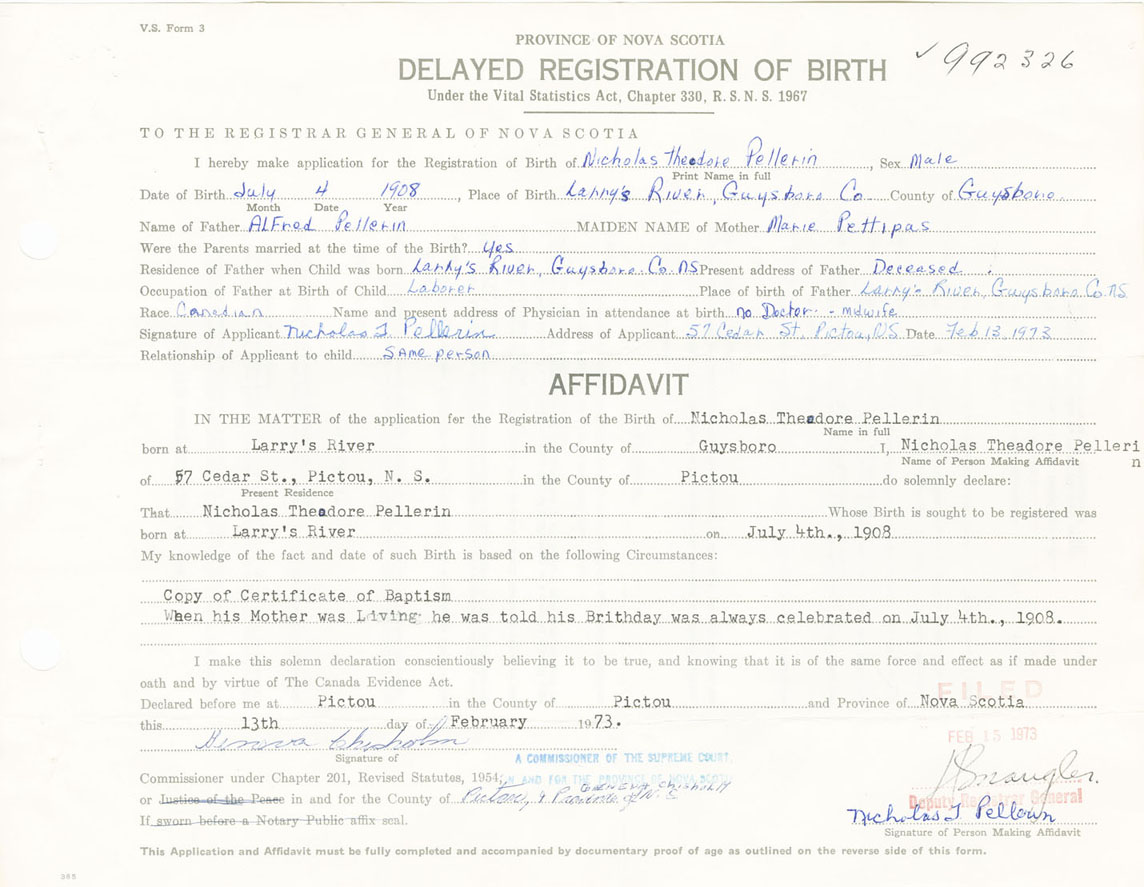 V.S. Form 3
PROVINCE OF NOVA SCOTIA
✓992326
DELAYED REGISTRATION OF BIRTH
Under the Vital Statistics Act, Chapter 330, R. S. N. S. 1967
TO THE REGISTRAR GENERAL OF NOVA SCOTIA
I hereby make application for the Registration of Birth of Nicholas Theodore Pellerin, Sex Male
Print Name in full
Date of Birth July 4 1908, Place of Birth Larry's River, Guysboro Co County of Guysboro
Month Date Year
Name of Father Alfred Pellerin MAIDEN NAME of Mother Marie Pettipas
Were the Parents married at the time of the Birth? Yes
Residence of Father when Child was born Larry's River, Guysboro. Co. NS Present address of Father Deceased.
Occupation of Father at Birth of Child Laborer Place of birth of Father Larry's River, Guysboro Co. NS
Race Canadian Name and present address of Physician in attendance at birth no Doctor - midwife
Signature of Applicant Nicholas T Pellerin Address of Applicant 57 Cedar St. Pictou, N.S. Date Feb 13, 1973
Relationship of Applicant to child same person
AFFIDAVIT
IN THE MATTER of the application for the Registration of the Birth of Nicholas Theadore Pellerin
Name in full
born at Larry's River in the County of Guysboro I, Nicholas Theadore Pellerin
Name of Person Making Affidavit
of 57 Cedar St., Pictou, N. S. in the County of Pictou do solemnly declare:
Present Residence
That Nicholas Theodore Pellerin Whose Birth is sought to be registered was
born at Larry's River on July 4th., 1908
My knowledge of the fact and date of such Birth is based on the following Circumstances:
Copy of Certificate of Baptism
When his Mother was Living he was told his Brithday was always celebrated on July 4th., 1908.
I make this solemn declaration conscientiously believing it to be true, and knowing that it is of the same force and effect as if made under
oath and by virtue of The Canada Evidence Act.
FILED
Declared before me at Pictou in the County of Pictou and Province of Nova Scotia
this 13th day of February 1973.
FEB 15 1973
Geneva Chisholm
Signature of
A COMMISSIONER OF THE SUPREME COURT,
Commissioner under Chapter 201, Revised Statutes, 1954; IN AND FOR THE PROVINCE OF NOVA SCOTIA
GENEVA CHISHOLM
or Justice of the Peace in and for the County of Pictou, & Province of N.S
Deputy Registrar General
If sworn before a Notary Public affix seal.
Nicholas T Pellerin
Signature of Person Making Affidavit
This Application and Affidavit must be fully completed and accompanied by documentary proof of age as outlined on the reverse side of this form.